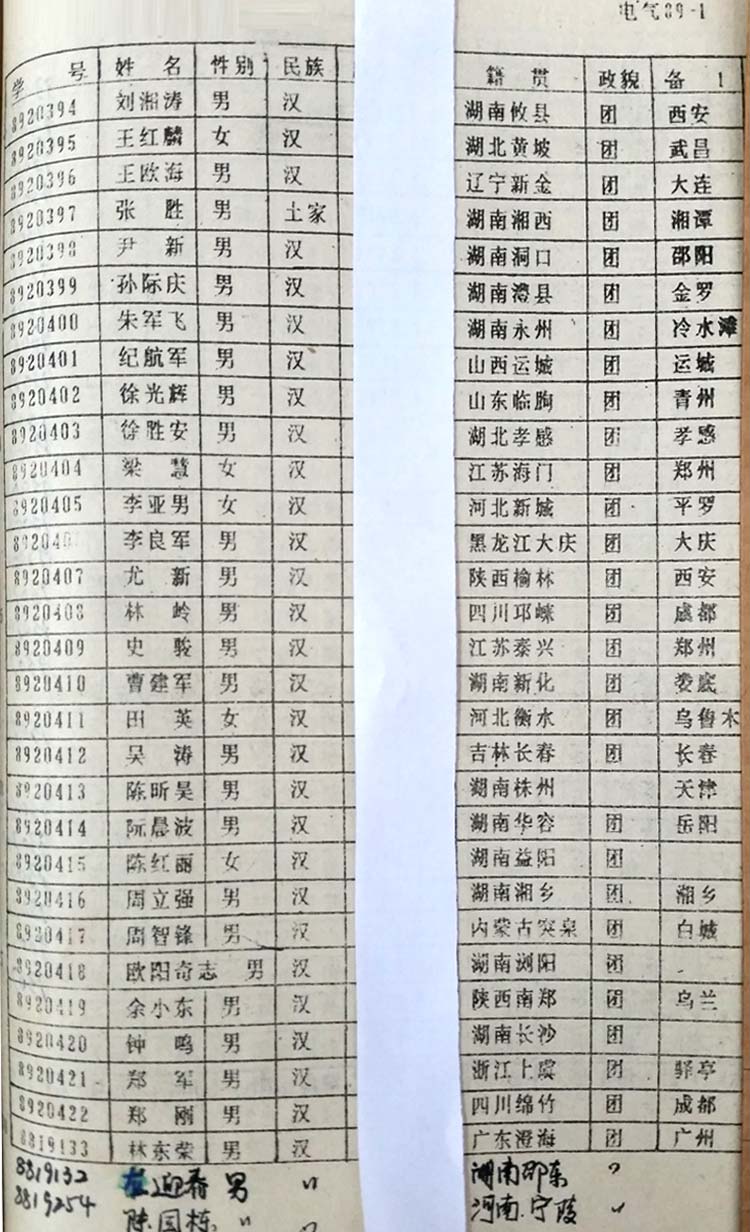 电气89-1
学号 姓名 性别 民族 籍贯 政貌 备
8920394 刘湘涛 男 汉 湖南攸县 团 西安
8920395 王红麟 女 汉 湖北黄坡 团 武昌
8920396 王欧海 男 汉 辽宁新金 团 大连
8920397 张胜 男 土家 湖南湘西 团 湘潭
8920398 尹新 男 汉 湖南洞口 团 邵阳
8920399 孙际庆 男 汉 湖南澧县 团 金罗
8920400 朱军飞 男 汉 湖南永州 团 冷水滩
8920401 纪航军 男 汉 山西运城 团 运城
8920402 徐光辉 男 汉 山东临朐 团 青州
8920403 徐胜安 男 汉 湖北孝感 团 孝感
8920404 梁慧 女 汉 江苏海门 团 郑州
8920405 李亚男 女 汉 河北新城 团 平罗
892040 李良军 男 汉 黑龙江大庆 团 大庆
8920407 尤新 男 汉 陕西榆林 团 西安
8920408 林岭 男 汉 四川邛崃 团 成都
8920409 史骏 男 汉 江苏泰兴 团 郑州
8920410 曹建军 男 汉 湖南新化 团 娄底
8920411 田英 女 汉 河北衡水 团 乌鲁木
8920412 吴涛 男 汉 吉林长春 团 长春
8920413 陈昕昊 男 汉 湖南株州 天津
8920414 阮晨波 男 汉 湖南华容 团 岳阳
8920415 陈红丽 女 汉 湖南益阳 团
8920416 周立强 男 汉 湖南湘乡 团 湘乡
8920417 周智锋 男 汉 内蒙古突泉 团 白城
8920418 欧阳奇志 男 汉 湖南浏阳 团
8920419 余小东 男 汉 陕西南郑 团 乌兰
8920420 钟鸣 男 汉 湖南长沙 团
8920421 郑军 男 汉 浙江上虞 团 驿亭
8920422 郑刚 男 汉 四川绵竹 团 成都
8819133 林东荣 男 汉 广东澄海 团 广州
8819132 迎春 男 〃 湖南邵东 ?
8819254 陈国栋 〃 〃 河南.宁陵 〃